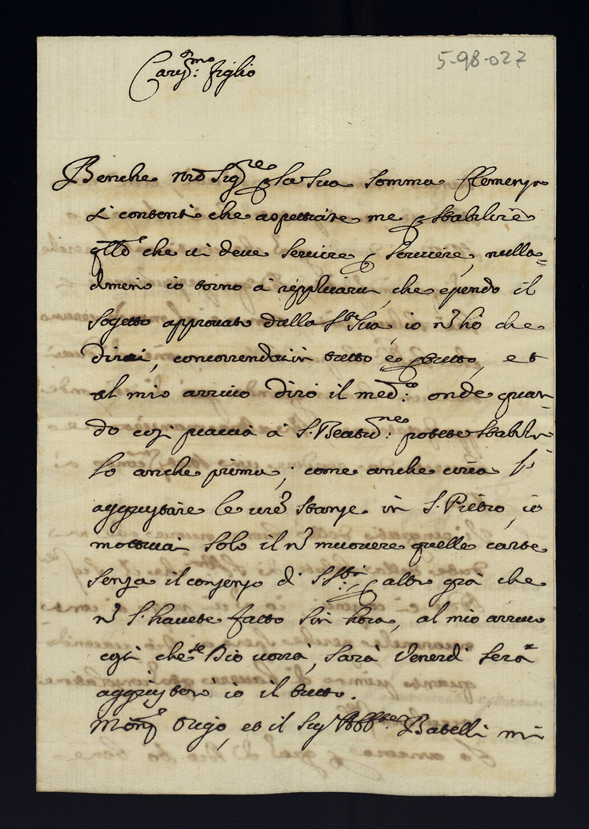 5-98-027
Cariss.mo figlio
Benche N'ro Sig.re p la sua somma Clemenza
si contenti che aspettiate me p stabilire
q'llo che vi deve servire p scrivere, nulla=
dimeno io torno à replicarvi, che essendo il
sogetto approvato dalla S.tà Sua, io n' hò che
dirci, concorrendovi in tutto e p tutto, et
al mio arrivo dirò il med.o: onde quan=
do così piaccia à S. Beatud.ne potete stabilir
lo anche prima; come anche circa l'
aggiustare le v're stanze in S. Pietro, io
motivai solo il n' muovere quelle carte
senza il consenso di S. S.tà: p altro già che
n' l'havete fatto sin hora, al mio arrivo
così che se Dio vorrà, sarà Venerdi sera
aggiusterò io il tutto.
Mons.r Origo, et il Sig. Babelli mi